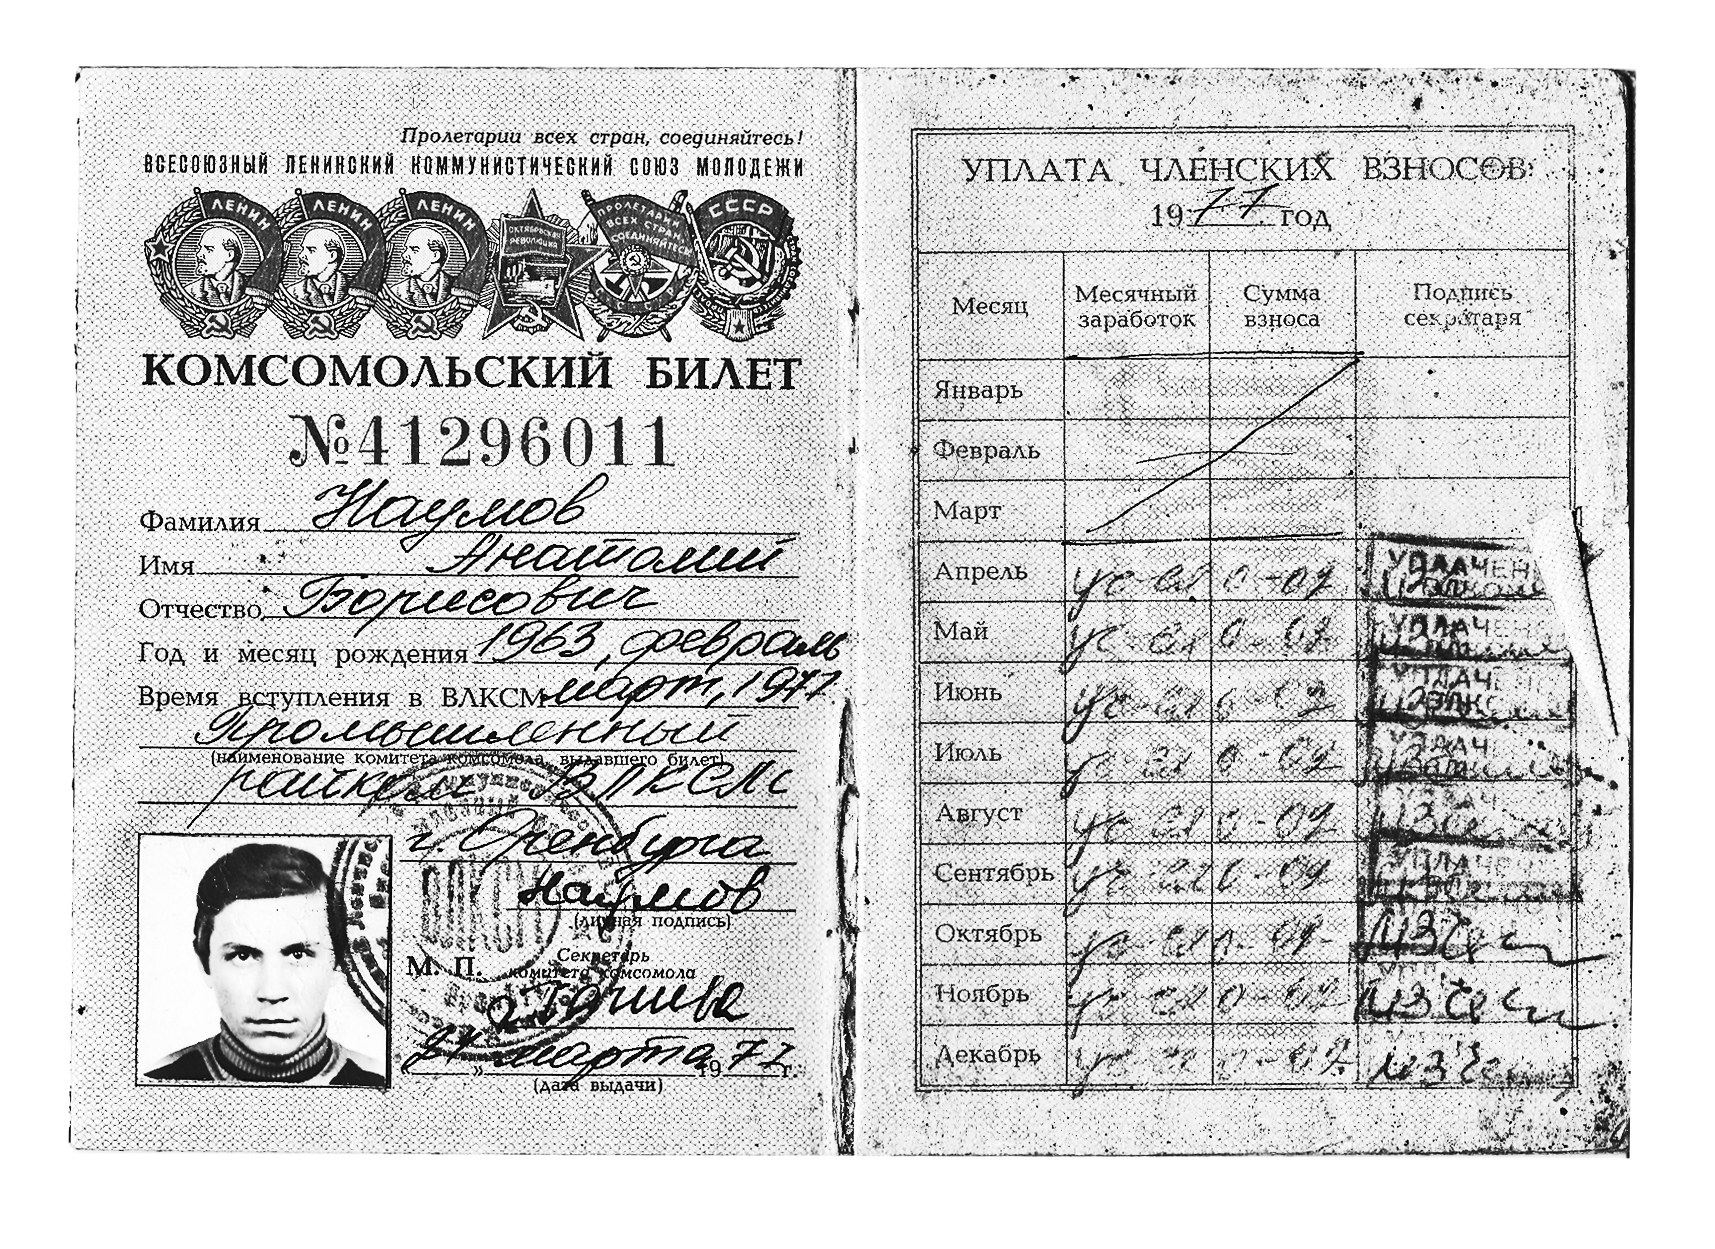 Пролетарии всех стран, соединяйтесь!
ВСЕСОЮЗНЫЙ ЛЕНИНСКИЙ КОММУНИСТИЧЕСКИЙ СОЮЗ МОЛОДЕЖИ
ЛЕНИН ЛЕНИН ЛЕНИН ОКТЯБРЬСКАЯ РЕВОЛЮЦИЯ ПРОЛЕТАРИИ ВСЕХ СТРАН СОЕДИНЯЙТЕСЬ СССР
КОМСОМОЛЬСКИЙ БИЛЕТ
№41296011
Фамилия Наумов
Имя Анатолий
Отчество Борисович
Год и месяц рождения 1963, февраль
Время вступления в ВЛКСМ март, 1977
Промышленный
(наименование комитета комсомола, выдавшего билет)
райком ВЛКСМ
г. Оренбурга
Наумов
(личная подпись)
Секретарь
М. П. комитета комсомола
марта 1977 г.
(дата выдачи)
УПЛАТА ЧЛЕНСКИХ ВЗНОСОВ:
1977 год
Месяц Месячный заработок Сумма взноса Подпись секретаря
Январь
Февраль
Март
Апрель уч-ся 0-02 УПЛАЧЕНО
Май уч-ся 0-02 УПЛАЧЕНО
Июнь уч-ся 0-02 УПЛАЧЕНО
Июль уч-ся 0-02
Август уч-ся 0-02
Сентябрь уч-ся 0-02 УПЛАЧЕНО
Октябрь уч-ся 0-02
Ноябрь уч-ся 0-02
Декабрь уч-ся 0-02